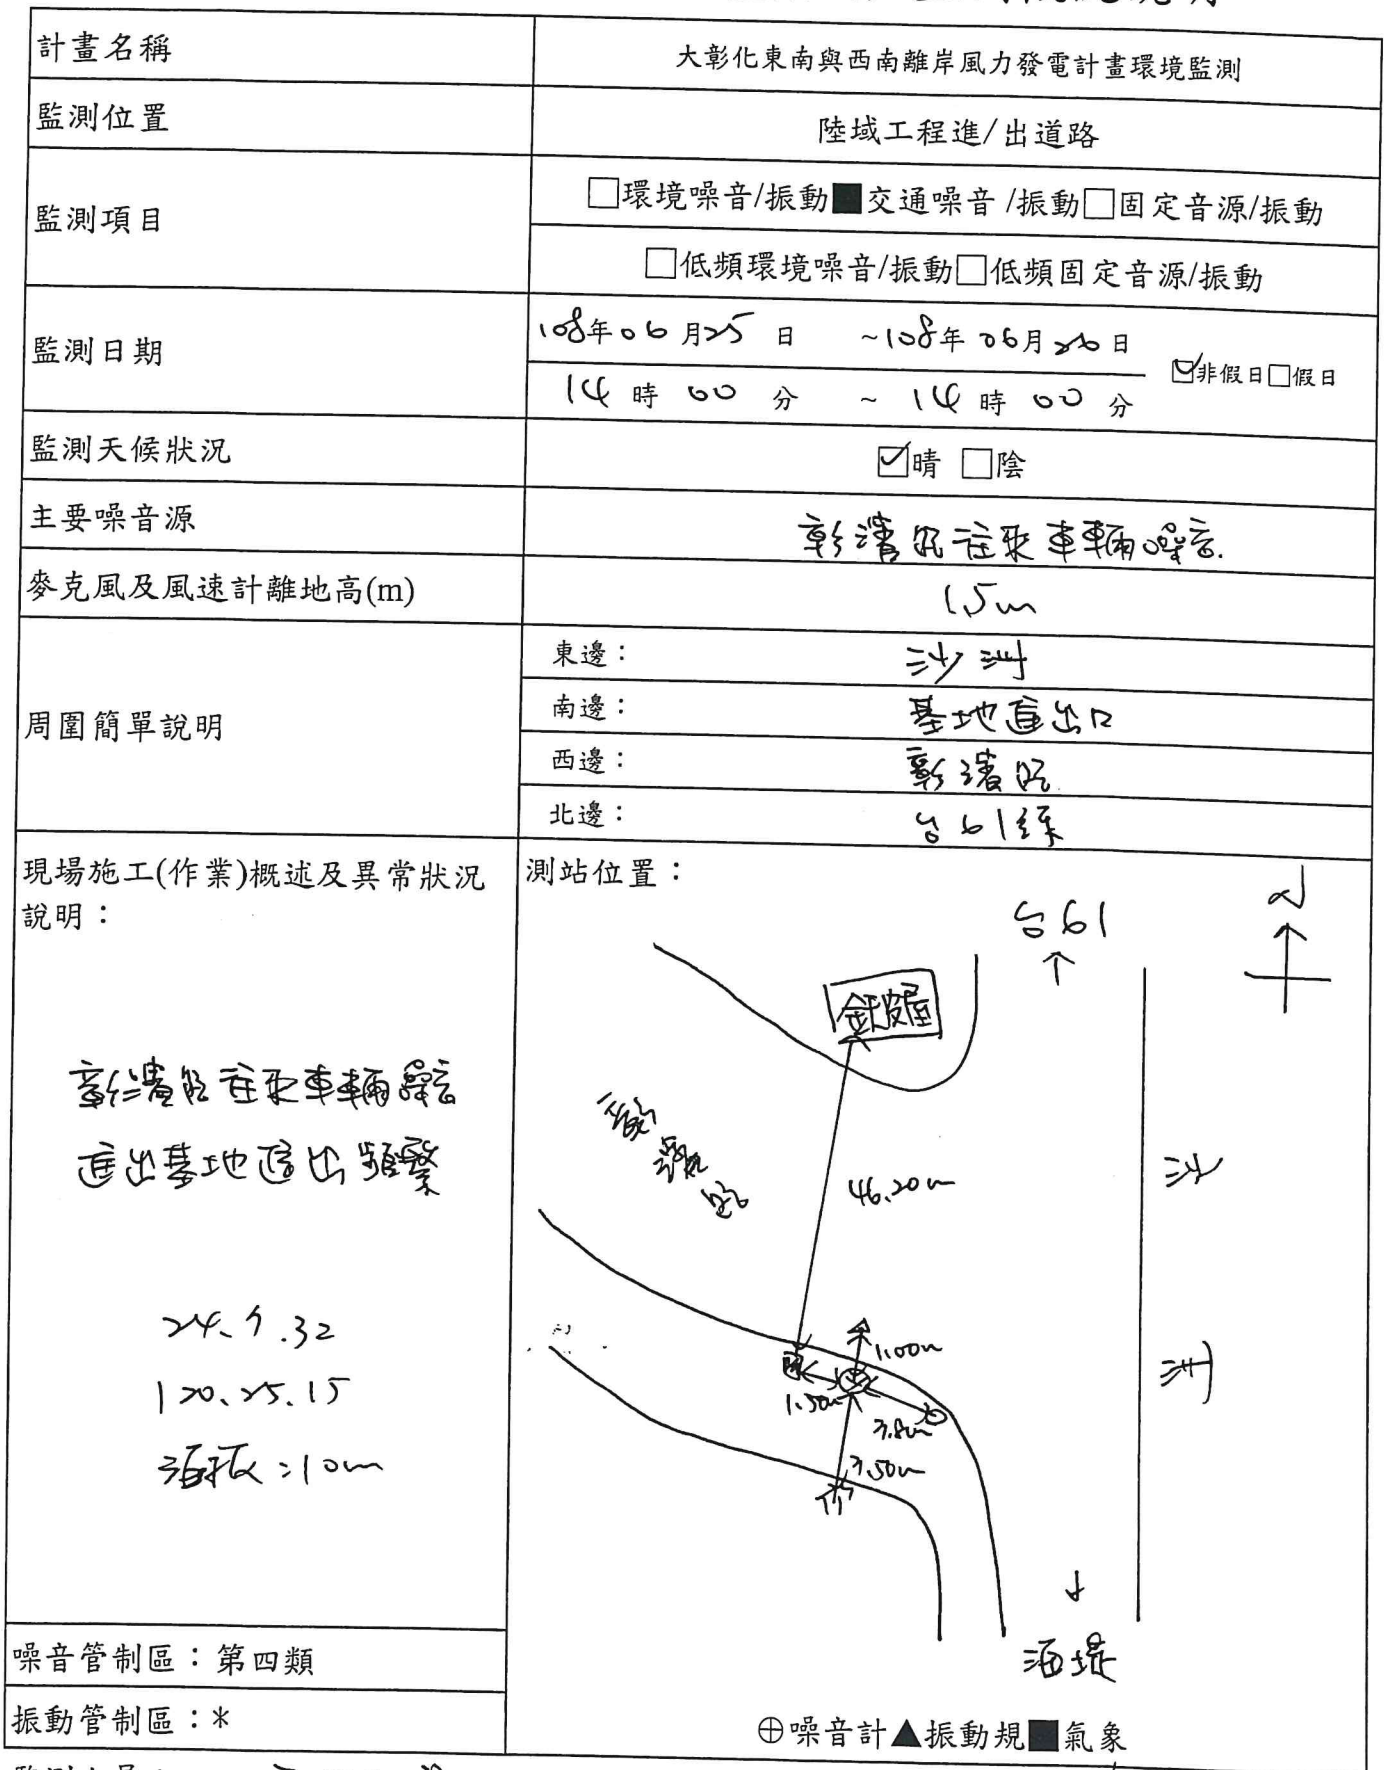 計畫名稱
大彰化東南與西南離岸風力發電計畫環境監測
監測位置
陸域工程進/出道路
監測項目
□環境噪音/振動■交通噪音/振動□固定音源/振動
□低頻環境噪音/振動□低頻固定音源/振動
監測日期
108年06月25日 ~108年06月26日
14時00分 ~ 14時00分
☑非假日□假日
監測天候狀況
☑晴 □陰
主要噪音源
彰濱路往來車輛噪音.
麥克風及風速計離地高(m)
1.5m
周圍簡單說明
東邊：沙洲
南邊：基地進出口
西邊：彰濱路
北邊：台61線
現場施工(作業)概述及異常狀況
說明：
彰濱路往來車輛噪音
進出基地進出頻繁
120.25.15
海拔:10m
測站位置：
台61
↑
N
鉄皮屋
彰濱路
46.20m
1.00m
1.50m
3.8m
3.50m
沙
洲
↓
海堤
噪音管制區：第四類
振動管制區：*
⊕噪音計▲振動規■氣象